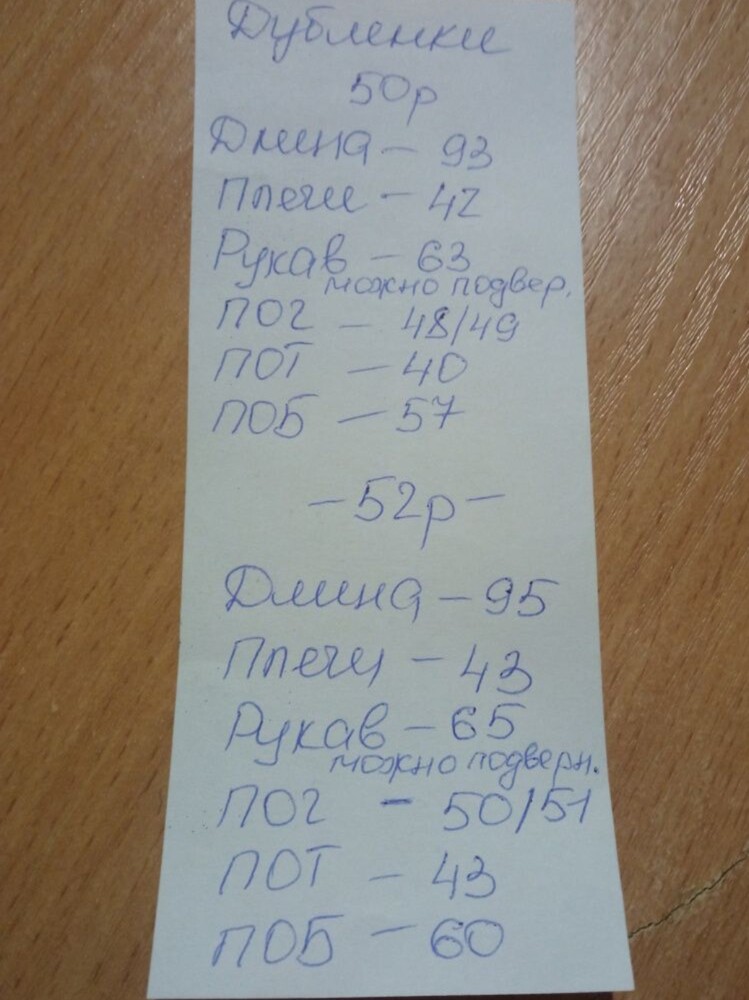 Дубленки
50р
Длина – 93
Плечи – 42
Рукав – 63
можно подвер.
ПОГ – 48/49
ПОТ – 40
ПОБ – 57
– 52р –
Длина – 95
Плечи – 43
Рукав – 65
можно подверн.
ПОГ – 50/51
ПОТ – 43
ПОБ – 60